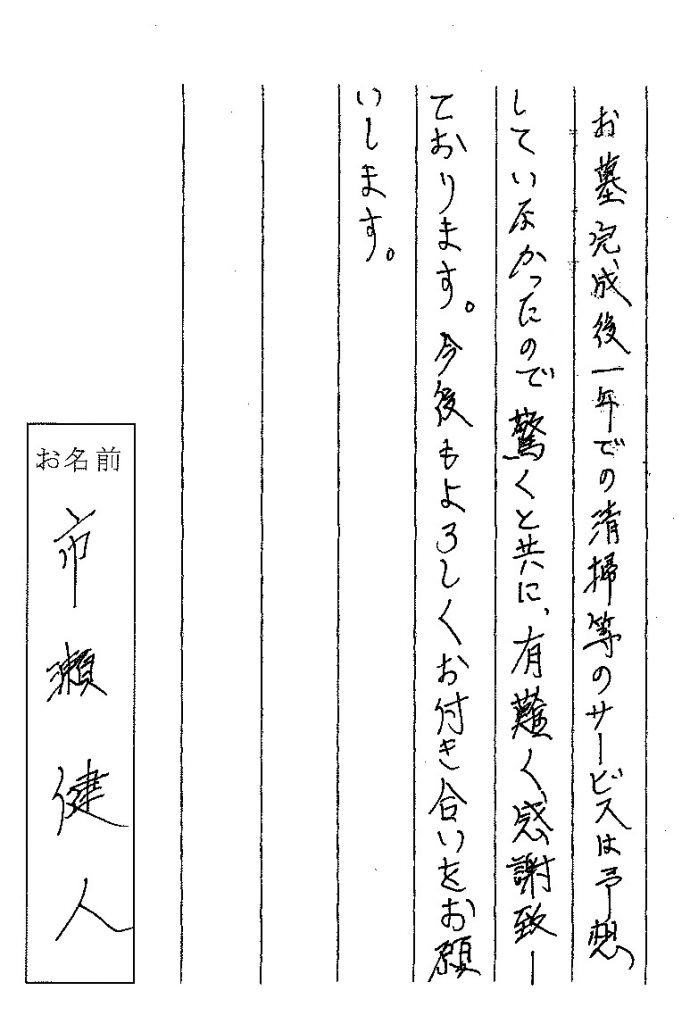 お墓完成後一年での清掃等のサービスは予想
していなかったので驚くと共に、有難く感謝致し
ております。今後もよろしくお付き合いをお願
いします。
お名前
市瀬健人